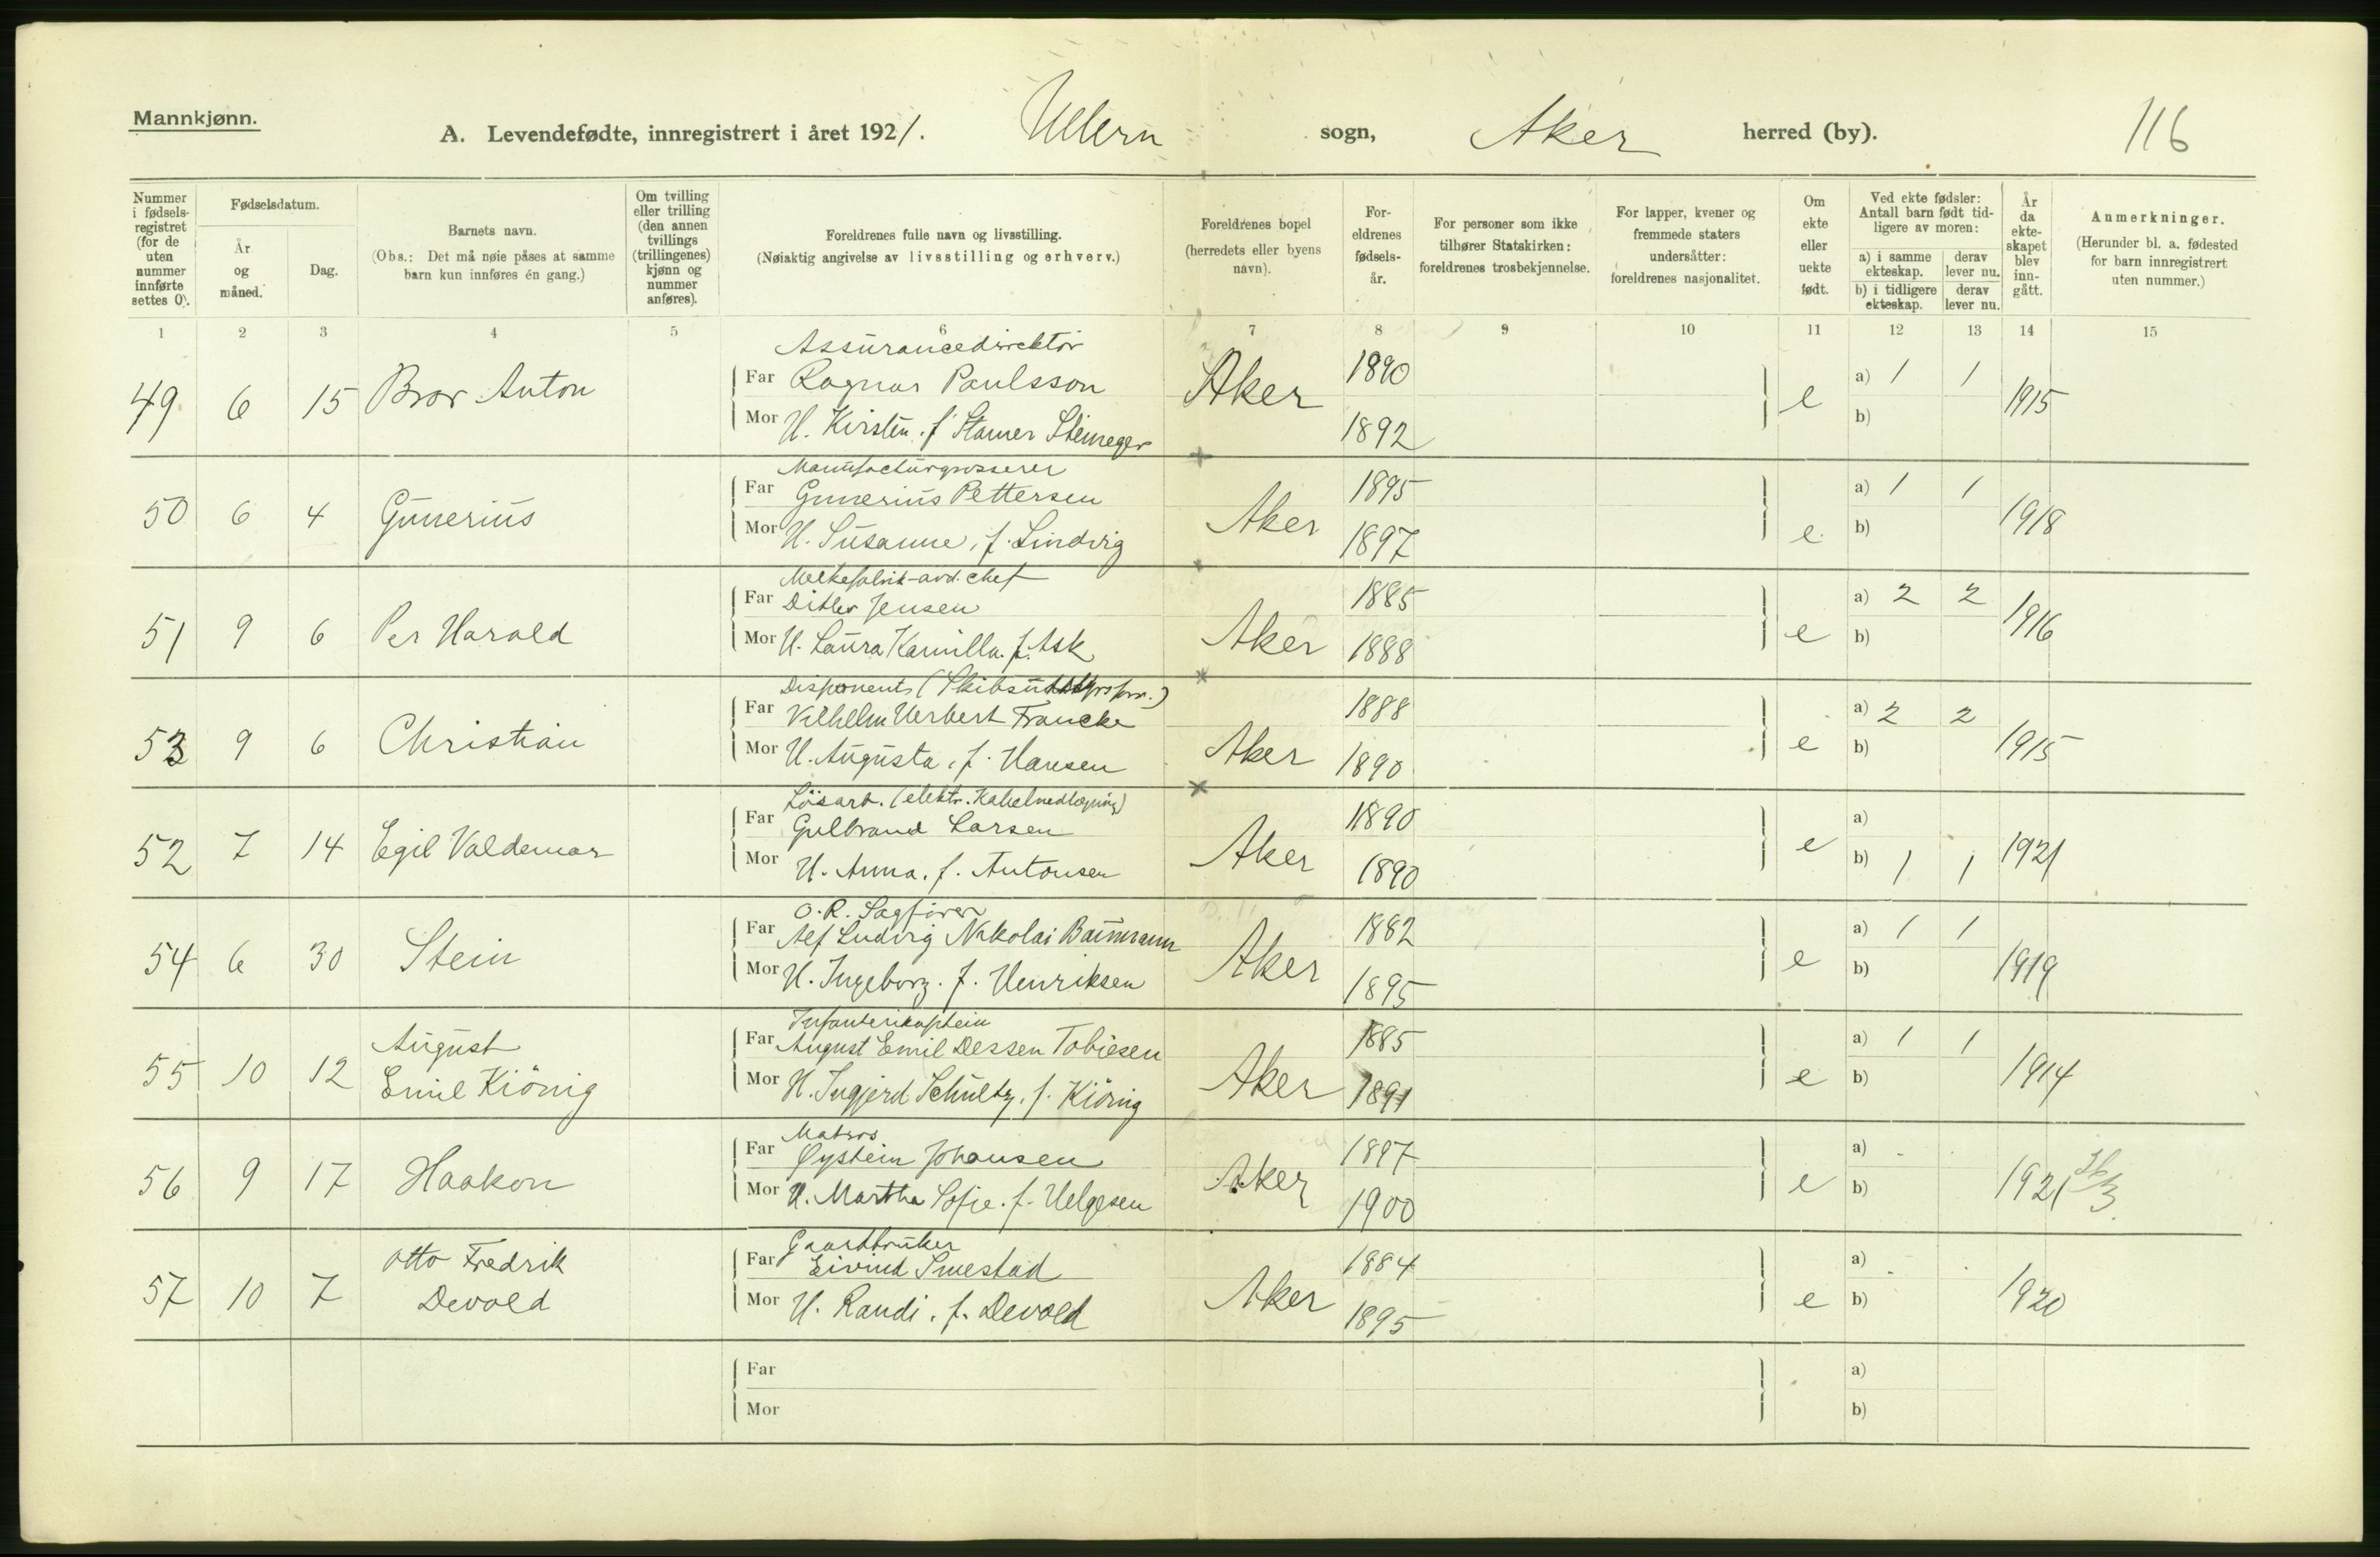 Mannkjønn.
A. Levendefødte, innregistrert i året 1921. Ullern sogn, Aker herred (by). 116
Nummer i fødsels-registret (for de uten nummer innførte settes 0).
Fødselsdatum.
År og måned.
Dag.
Barnets navn.
(Obs.: Det må nøie påses at samme barn kun innføres én gang.)
Om tvilling eller trilling (den annen tvillings (trillingenes) kjønn og nummer anføres).
Foreldrenes fulle navn og livsstilling.
(Nøiaktig angivelse av livsstilling og erhverv.)
Foreldrenes bopel (herredets eller byens navn).
For-eldrenes fødsels-år.
For personer som ikke tilhører Statskirken: foreldrenes trosbekjennelse.
For lapper, kvener og fremmede staters undersåtter: foreldrenes nasjonalitet.
Om ekte eller uekte født.
Ved ekte fødsler: Antall barn født tid-ligere av moren:
a) i samme ekteskap. derav lever nu.
b) i tidligere ekteskap. derav lever nu.
År da ekte-skapet blev inn-gått.
Anmerkninger.
(Herunder bl. a. fødested for barn innregistrert uten nummer.)
1 2 3 4 5 6 7 8 9 10 11 12 13 14 15
Assurancedirektör
49 6 15 Bror Anton Far Ragnar Paulsson Aker 1890 e a) 1 1 1915
Mor H. Kirsten. f. Stamer 1892 b)
Manufacturgrosserer
50 6 4 Gunerius Far Gunerius Pettersen Aker 1895 e. a) 1 1 1918
Mor H. Susanne, f. Lindvig 1897 b)
Melkefabrik-avd. chef
51 9 6 Per Harald Far Ditlev Jensen Aker 1885 e a) 2 2 1916
Mor H. Laura Kamilla. f. Ask 1888 b)
Disponent
53 9 6 Christian Far Vilhelm Herbert Francke Aker 1888 e a) 2 2 1915
Mor H. Augusta, f. Hansen 1890 b)
Lösarb. (elektr. Kabelnedlægning)
52 7 14 Egil Valdemar Far Gulbrand Larsen Aker 1890 e a) 1921
Mor H. Anna. f. Antonsen 1890 b) 1 1
O. R. Sagförer
54 6 30 Stein Far Alf Ludvig Nikolai Baumann Aker 1882 e a) 1 1 1919
Mor H. Ingeborg. f. Henriksen 1895 b)
Infanterikaptein
55 10 12 August Emil Kiönig Far August Emil Dessen Tobiesen Aker 1885 e a) 1 1 1914
Mor H. Ingjerd Schultz, f. Kiönig 1891 b)
Matros
56 9 17 Haakon Far Øystein Johansen Aker 1897 e a) - . 1921
Mor H. Martha Sofie. f. Helgesen 1900 b)
Gaardbruker
57 10 7 Otto Fredrik Devold Far Eivind Smestad Aker 1884 e a) . . 1920
Mor H. Randi. f. Devold 1895 b)
Far a)
Mor b)